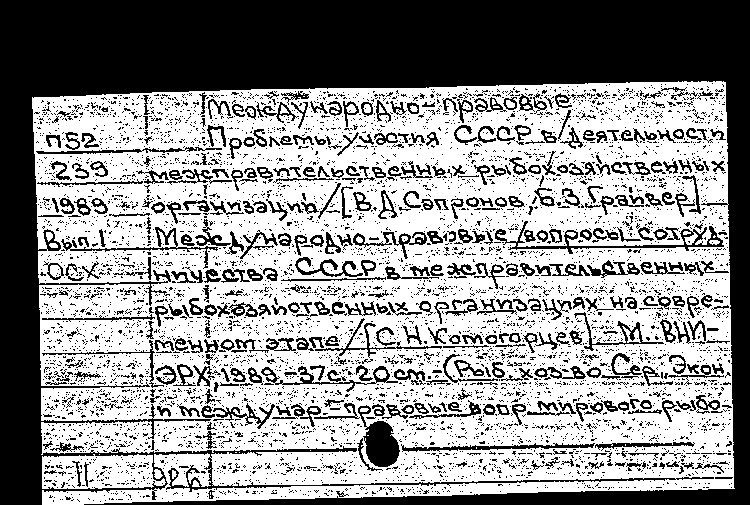 Международно-правовые
П52 Проблемы участия СССР в деятельности
239 межправительственных рыбохозяйственных
1989 организаций/[В.Д.Сапронов, Б.З.Грайвер]
Вып.1 Международно-правовые вопросы сотруд-
ОСХ ничества СССР в межправительственных
рыбохозяйственных организациях на совре-
менном этапе/[С.Н.Комогорцев]-М.:ВНИ-
ЭРХ,1989.-37с.,20см.-(Рыб. хоз-во Сер.,,Экон.
и междунар.-правовые вопр. мирового рыбо-
II 926